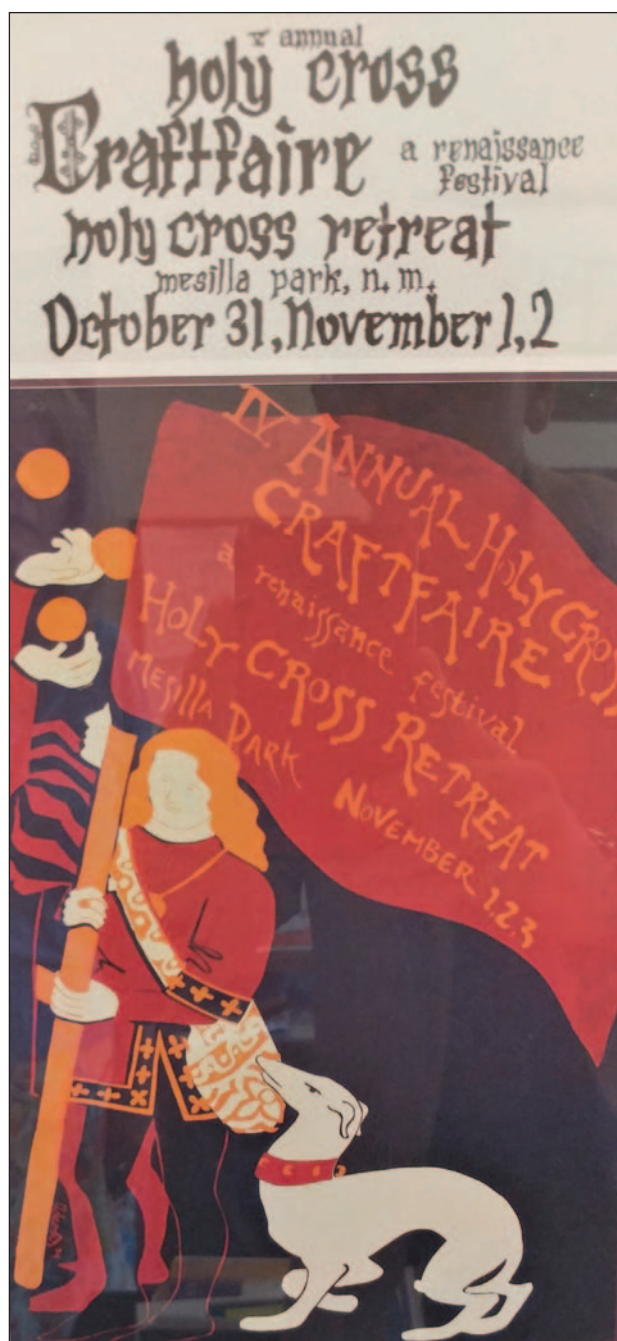 V annual
holy cross
Craftfaire
a renaissance
festival
holy cross retreat
mesilla park, n. m.
October 31, November 1, 2
IV ANNUAL HOLY CROSS
CRAFTFAIRE
a renaissance festival
HOLY CROSS RETREAT
MESILLA PARK NOVEMBER 1,2,3